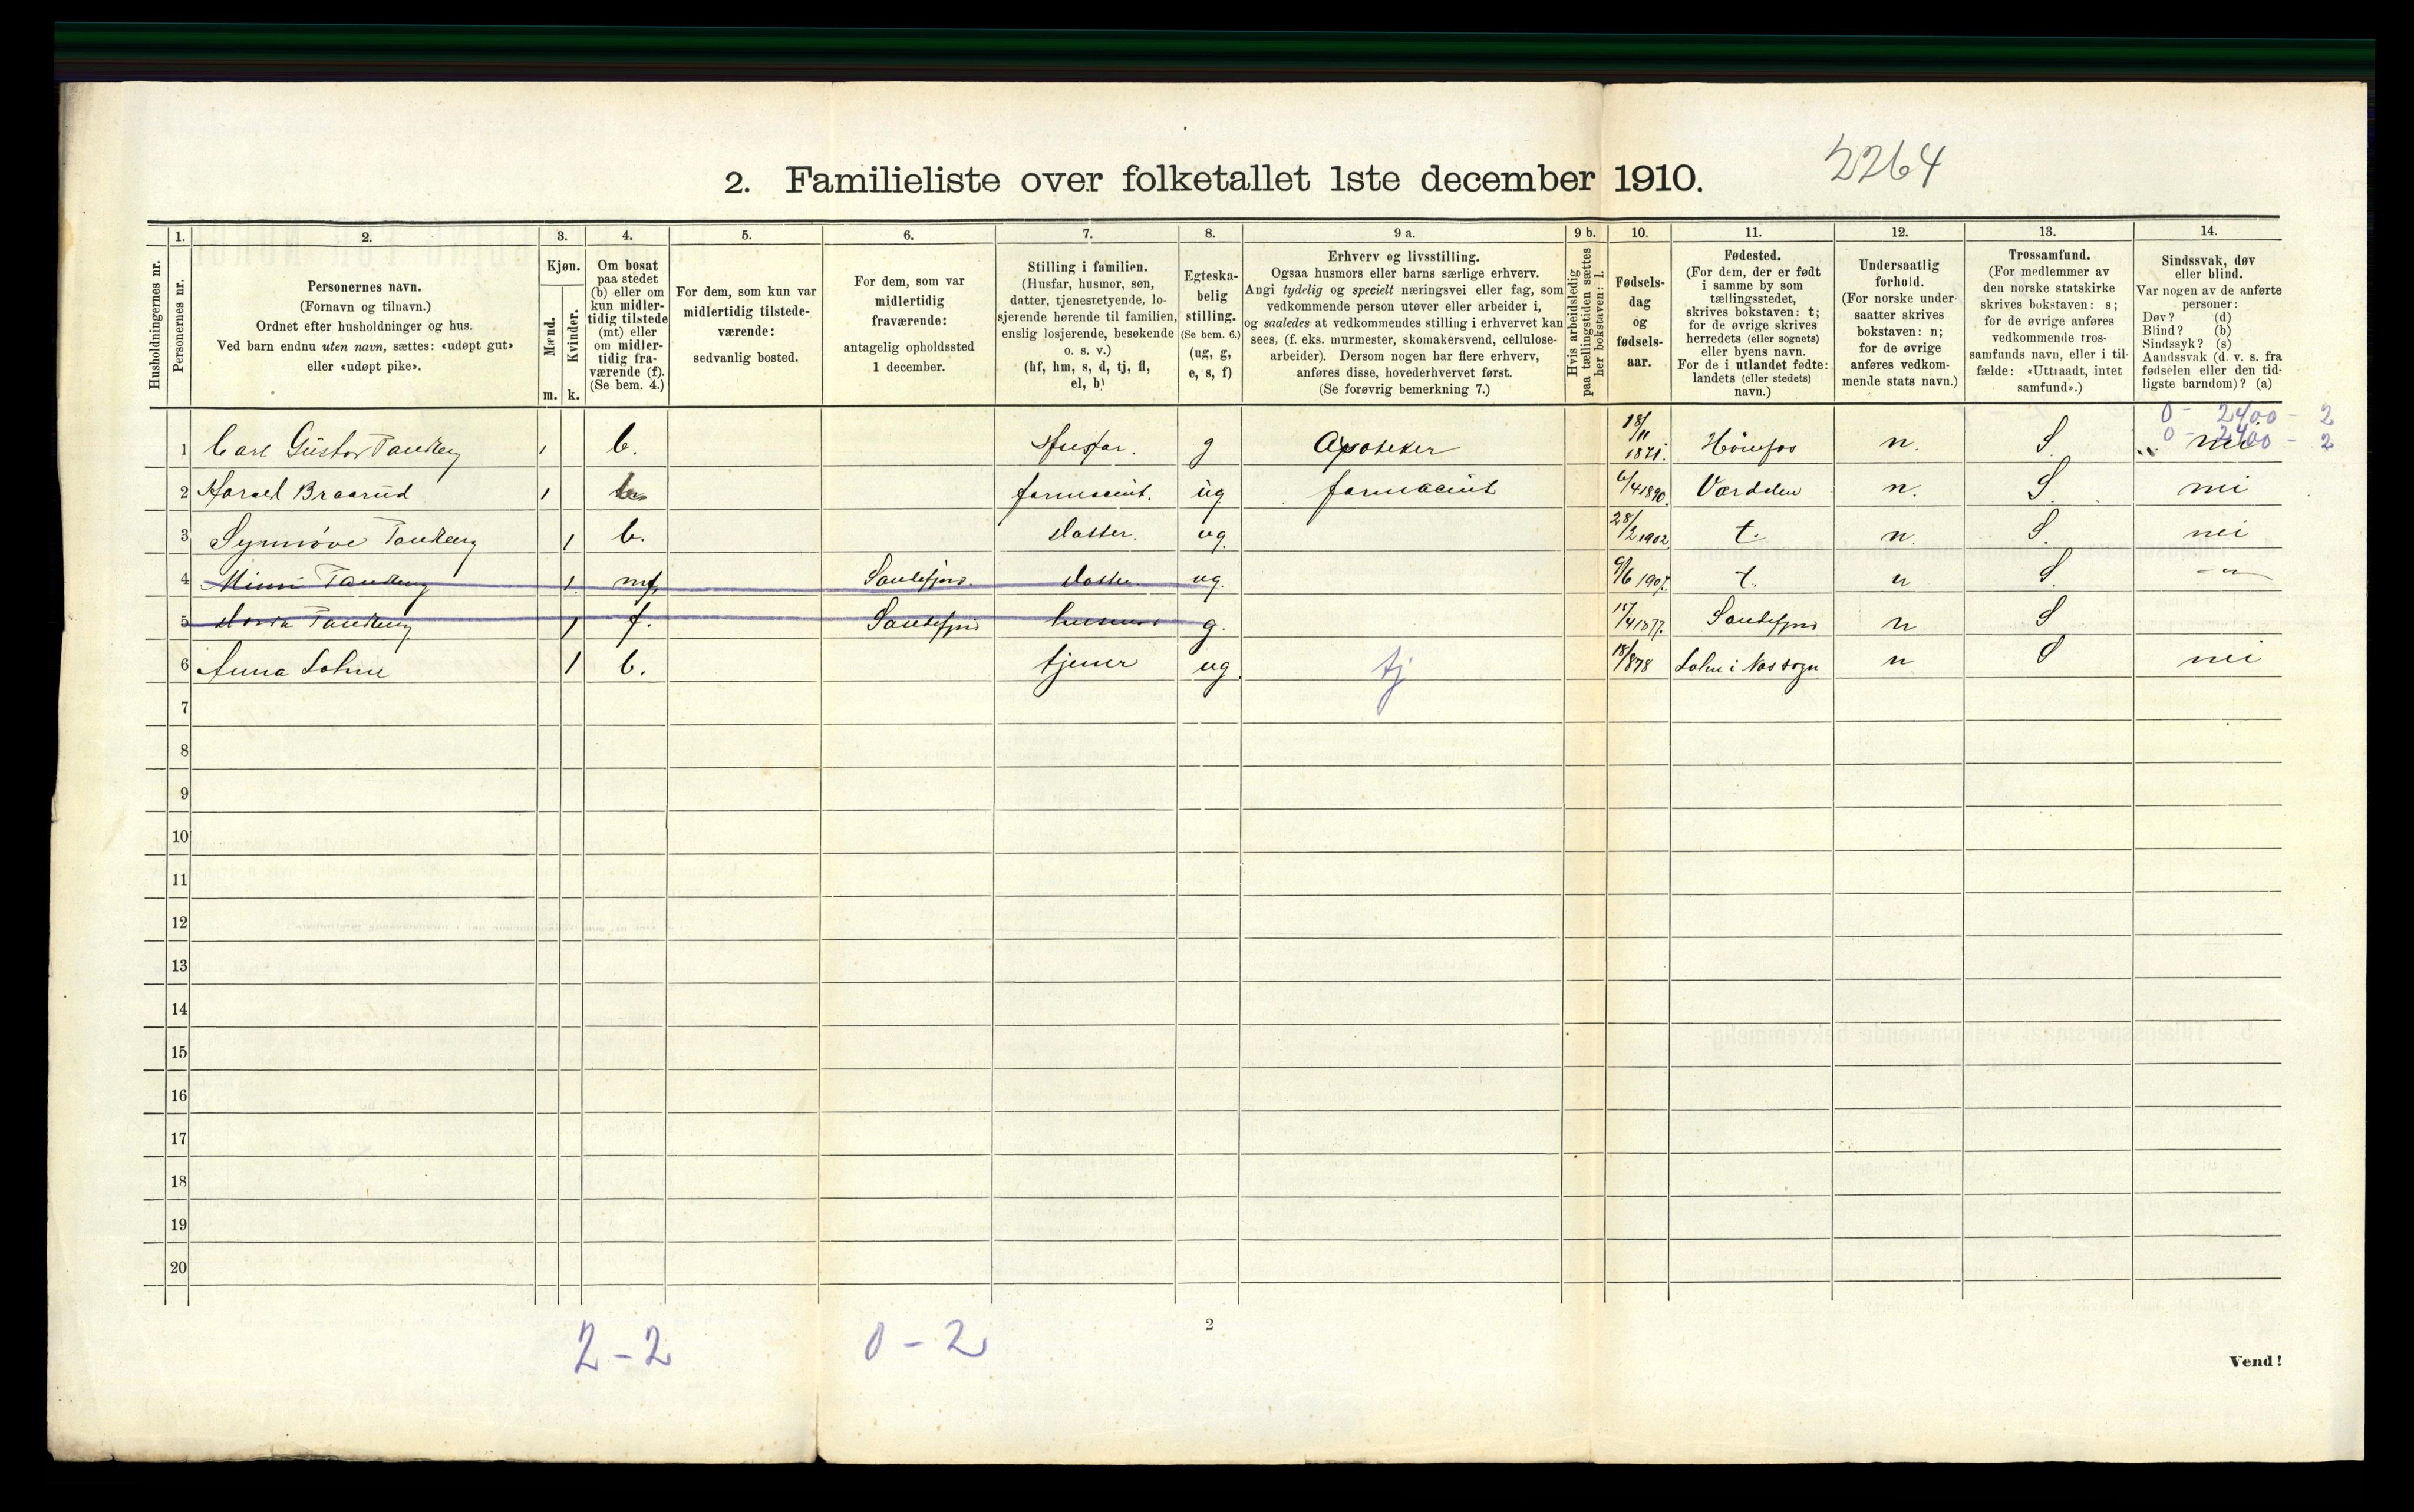 2264
2. Familieliste over folketallet 1ste december 1910.
Husholdningernes nr.
1. Personernes nr.
2. Personernes navn.
(Fornavn og tilnavn.)
Ordnet efter husholdninger og hus.
Ved barn endnu uten navn, sættes: «udøpt gut»
eller «udøpt pike».
3. Kjøn.
Mænd. Kvinder.
m. k.
4. Om bosat
paa stedet
(b) eller om
kun midler-
tidig tilstede
(mt) eller
om midler-
tidig fra-
værende (f).
(Se bem. 4.)
5. For dem, som kun var
midlertidig tilstede-
værende:
sedvanlig bosted.
6. For dem, som var
midlertidig
fraværende:
antagelig opholdssted
1 december.
7. Stilling i familien.
(Husfar, husmor, søn,
datter, tjenestetyende, lo-
sjerende hørende til familien,
enslig losjerende, besøkende
o. s. v.)
(hf, hm, s, d, tj, fl,
el, b)
8. Egteska-
belig
stilling.
(Se bem. 6.)
(ug, g,
e, s, f)
9 a. Erhverv og livsstilling.
Ogsaa husmors eller barns særlige erhverv.
Angi tydelig og specielt næringsvei eller fag, som
vedkommende person utøver eller arbeider i,
og saaledes at vedkommendes stilling i erhvervet kan
sees, (f. eks. murmester, skomakersvend, cellulose-
arbeider). Dersom nogen har flere erhverv,
anføres disse, hovederhvervet først.
(Se forøvrig bemerkning 7.)
9 b. Hvis arbeidsledig
paa tællingstiden sættes
her bokstaven: l.
10. Fødsels-
dag
og
fødsels-
aar.
11. Fødested.
(For dem, der er født
i samme by som
tællingsstedet,
skrives bokstaven: t;
for de øvrige skrives
herredets (eller sognets)
eller byens navn.
For de i utlandet fødte:
landets (eller stedets)
navn.)
12. Undersaatlig
forhold.
(For norske under-
saatter skrives
bokstaven: n;
for de øvrige
anføres vedkom-
mende stats navn.)
13. Trossamfund.
(For medlemmer av
den norske statskirke
skrives bokstaven: s;
for de øvrige anføres
vedkommende tros-
samfunds navn, eller i til-
fælde: «Uttraadt, intet
samfund».)
14. Sindssvak, døv
eller blind.
Var nogen av de anførte
personer:
Døv? (d)
Blind? (b)
Sindssyk? (s)
Aandssvak (d. v. s. fra
fødselen eller den tid-
ligste barndom)? (a)
0 - 2400 - 2
0 - 2400 - 2
1 Carl Gustav Tandberg 1 b. Husfar. g Apoteker 18/11 1871. Hønefos n. S. nei
2 Harald Braarud 1 farmaceut. ug farmaceut 6/4 1890. n. S. nei
3 Synnøve Tandberg 1 b. datter. ug. 28/2 1902 t. n. S. nei
4 Mimi Tandberg 1 Sandefjord. datter ug. 9/6 1907. t. n S. - " -
5 Tandberg 1 f. Sandefjord husmor g. 15/4 1877. Sandefjord n S
6 Anna Lohne 1 b. tjener ug. tj 18/878 Lohne i Nes sogn n S nei
7
8
9
10
11
12
13
14
15
16
17
18
19
20
2 - 2 0 - 2
2
Vend!